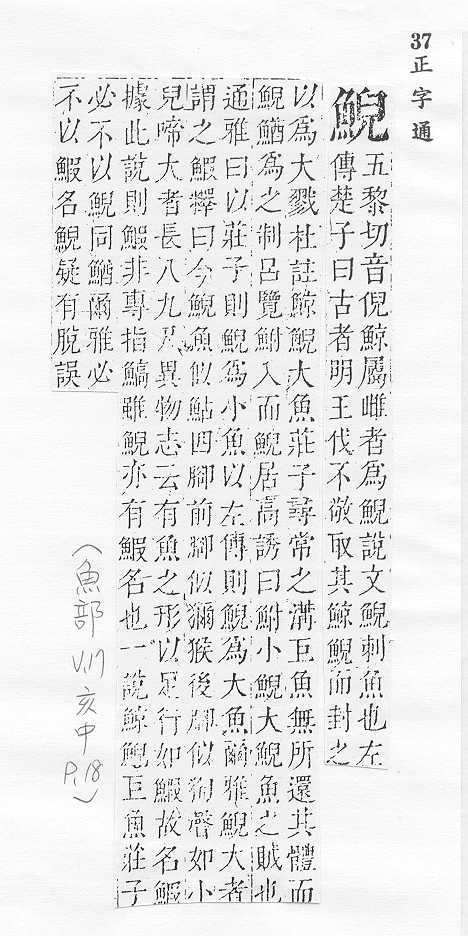 37正字通
鯢
五黎切音倪鯨屬雌者爲鯢說文鯢刺魚也左
傳楚子曰古者明王伐不敬取其鯨鯢而封之
以爲大戮杜註鯨鯢大魚莊子尋常之溝巨魚無所還其體而
鯢鰌爲之制呂覽鮒入而鯢居高誘曰鮒小鯢大鯢魚之賊也
通雅曰以莊子則鯢爲小魚以左傳則鯢爲大魚爾雅鯢大者
謂之鰕釋曰今鯢魚似鮎四腳前腳似獼猴後腳似狗聲如小
兒啼大者長八九尺異物志云有魚之形以足行如鰕故名鰕
據此說則鰕非專指鰝雖鯢亦有鰕名也一說鯨鯢巨魚莊子
必不以鯢同鰌爾雅必
不以鰕名鯢疑有脫誤
(魚部
V.17
亥中
P.18)